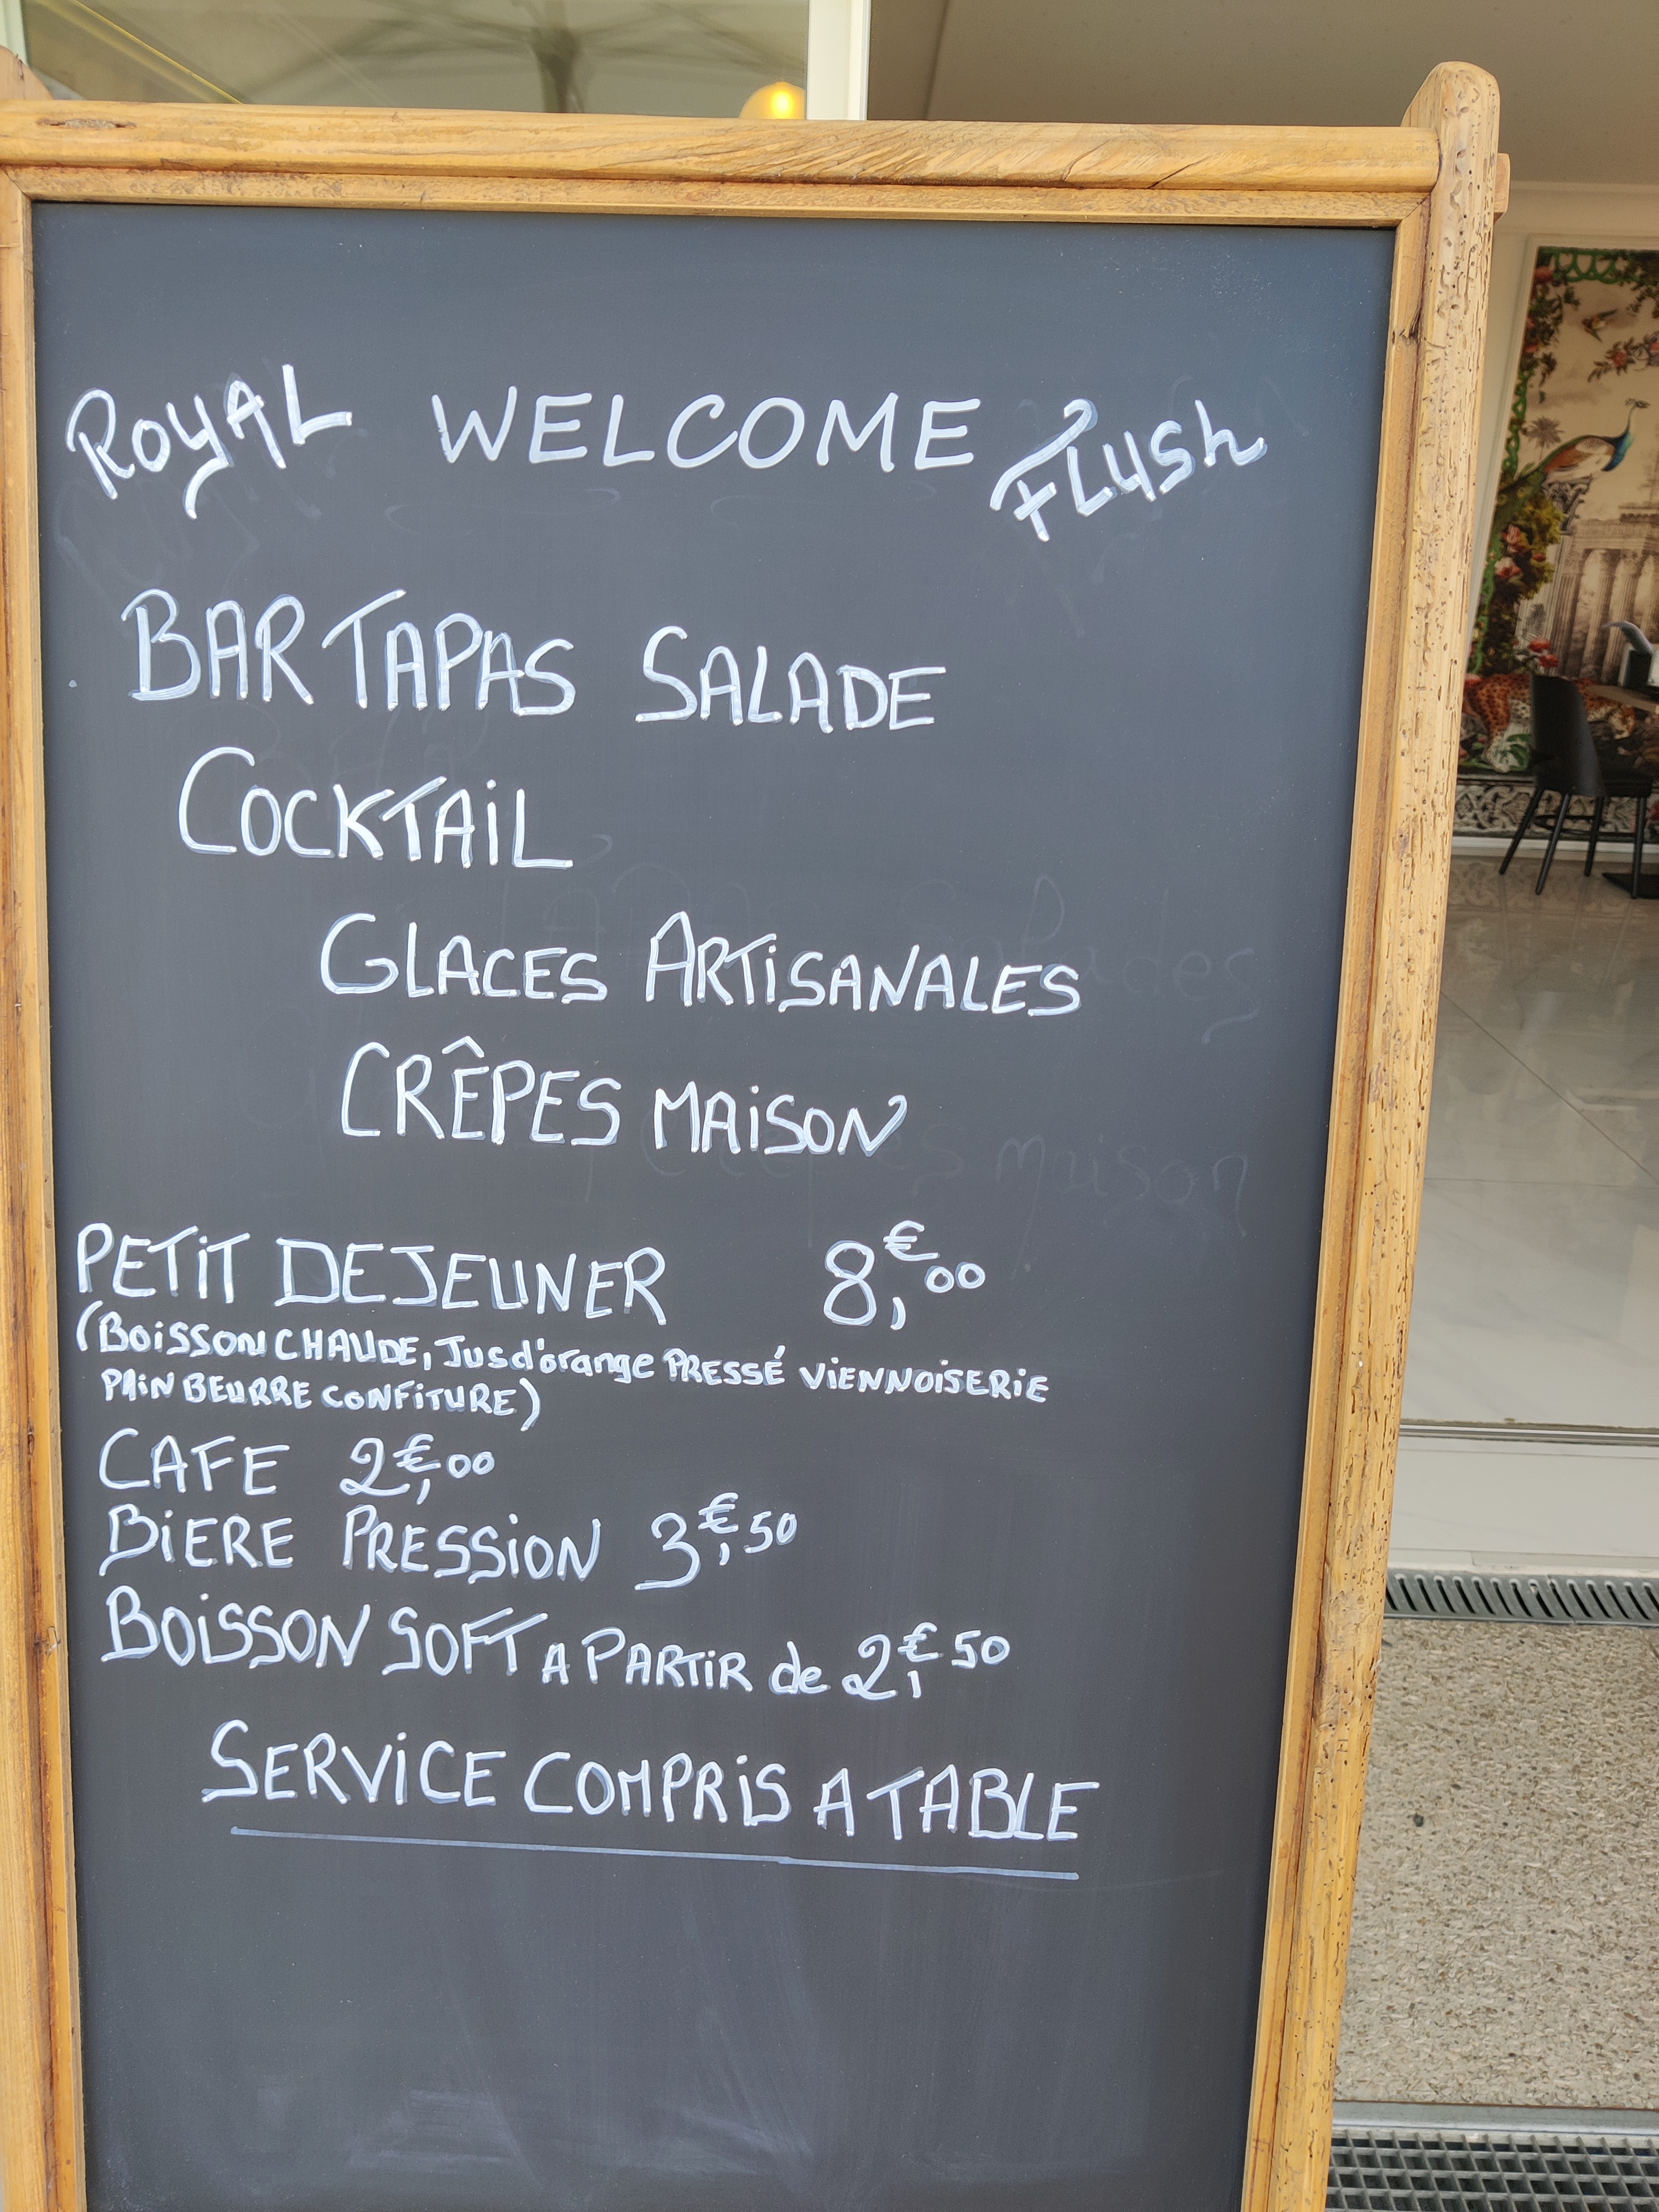 ROYAL WELCOME FLUSh
BAR TAPAS SALADE
COCKTAiL
GLACES ARTiSANALES
CRÊPES MAiSON
PETiT DEJEUNER 8,€00
(BOiSSON CHAUDE, Jus d'orange PRESSÉ ViENNOiSERiE
PAiN BEURRE CONFiTURE)
CAFE 2,€00
BiERE PRESSiON 3,€50
BOiSSON SOFT A PARTiR de 2,€50
SERViCE COMPRiS A TABLE